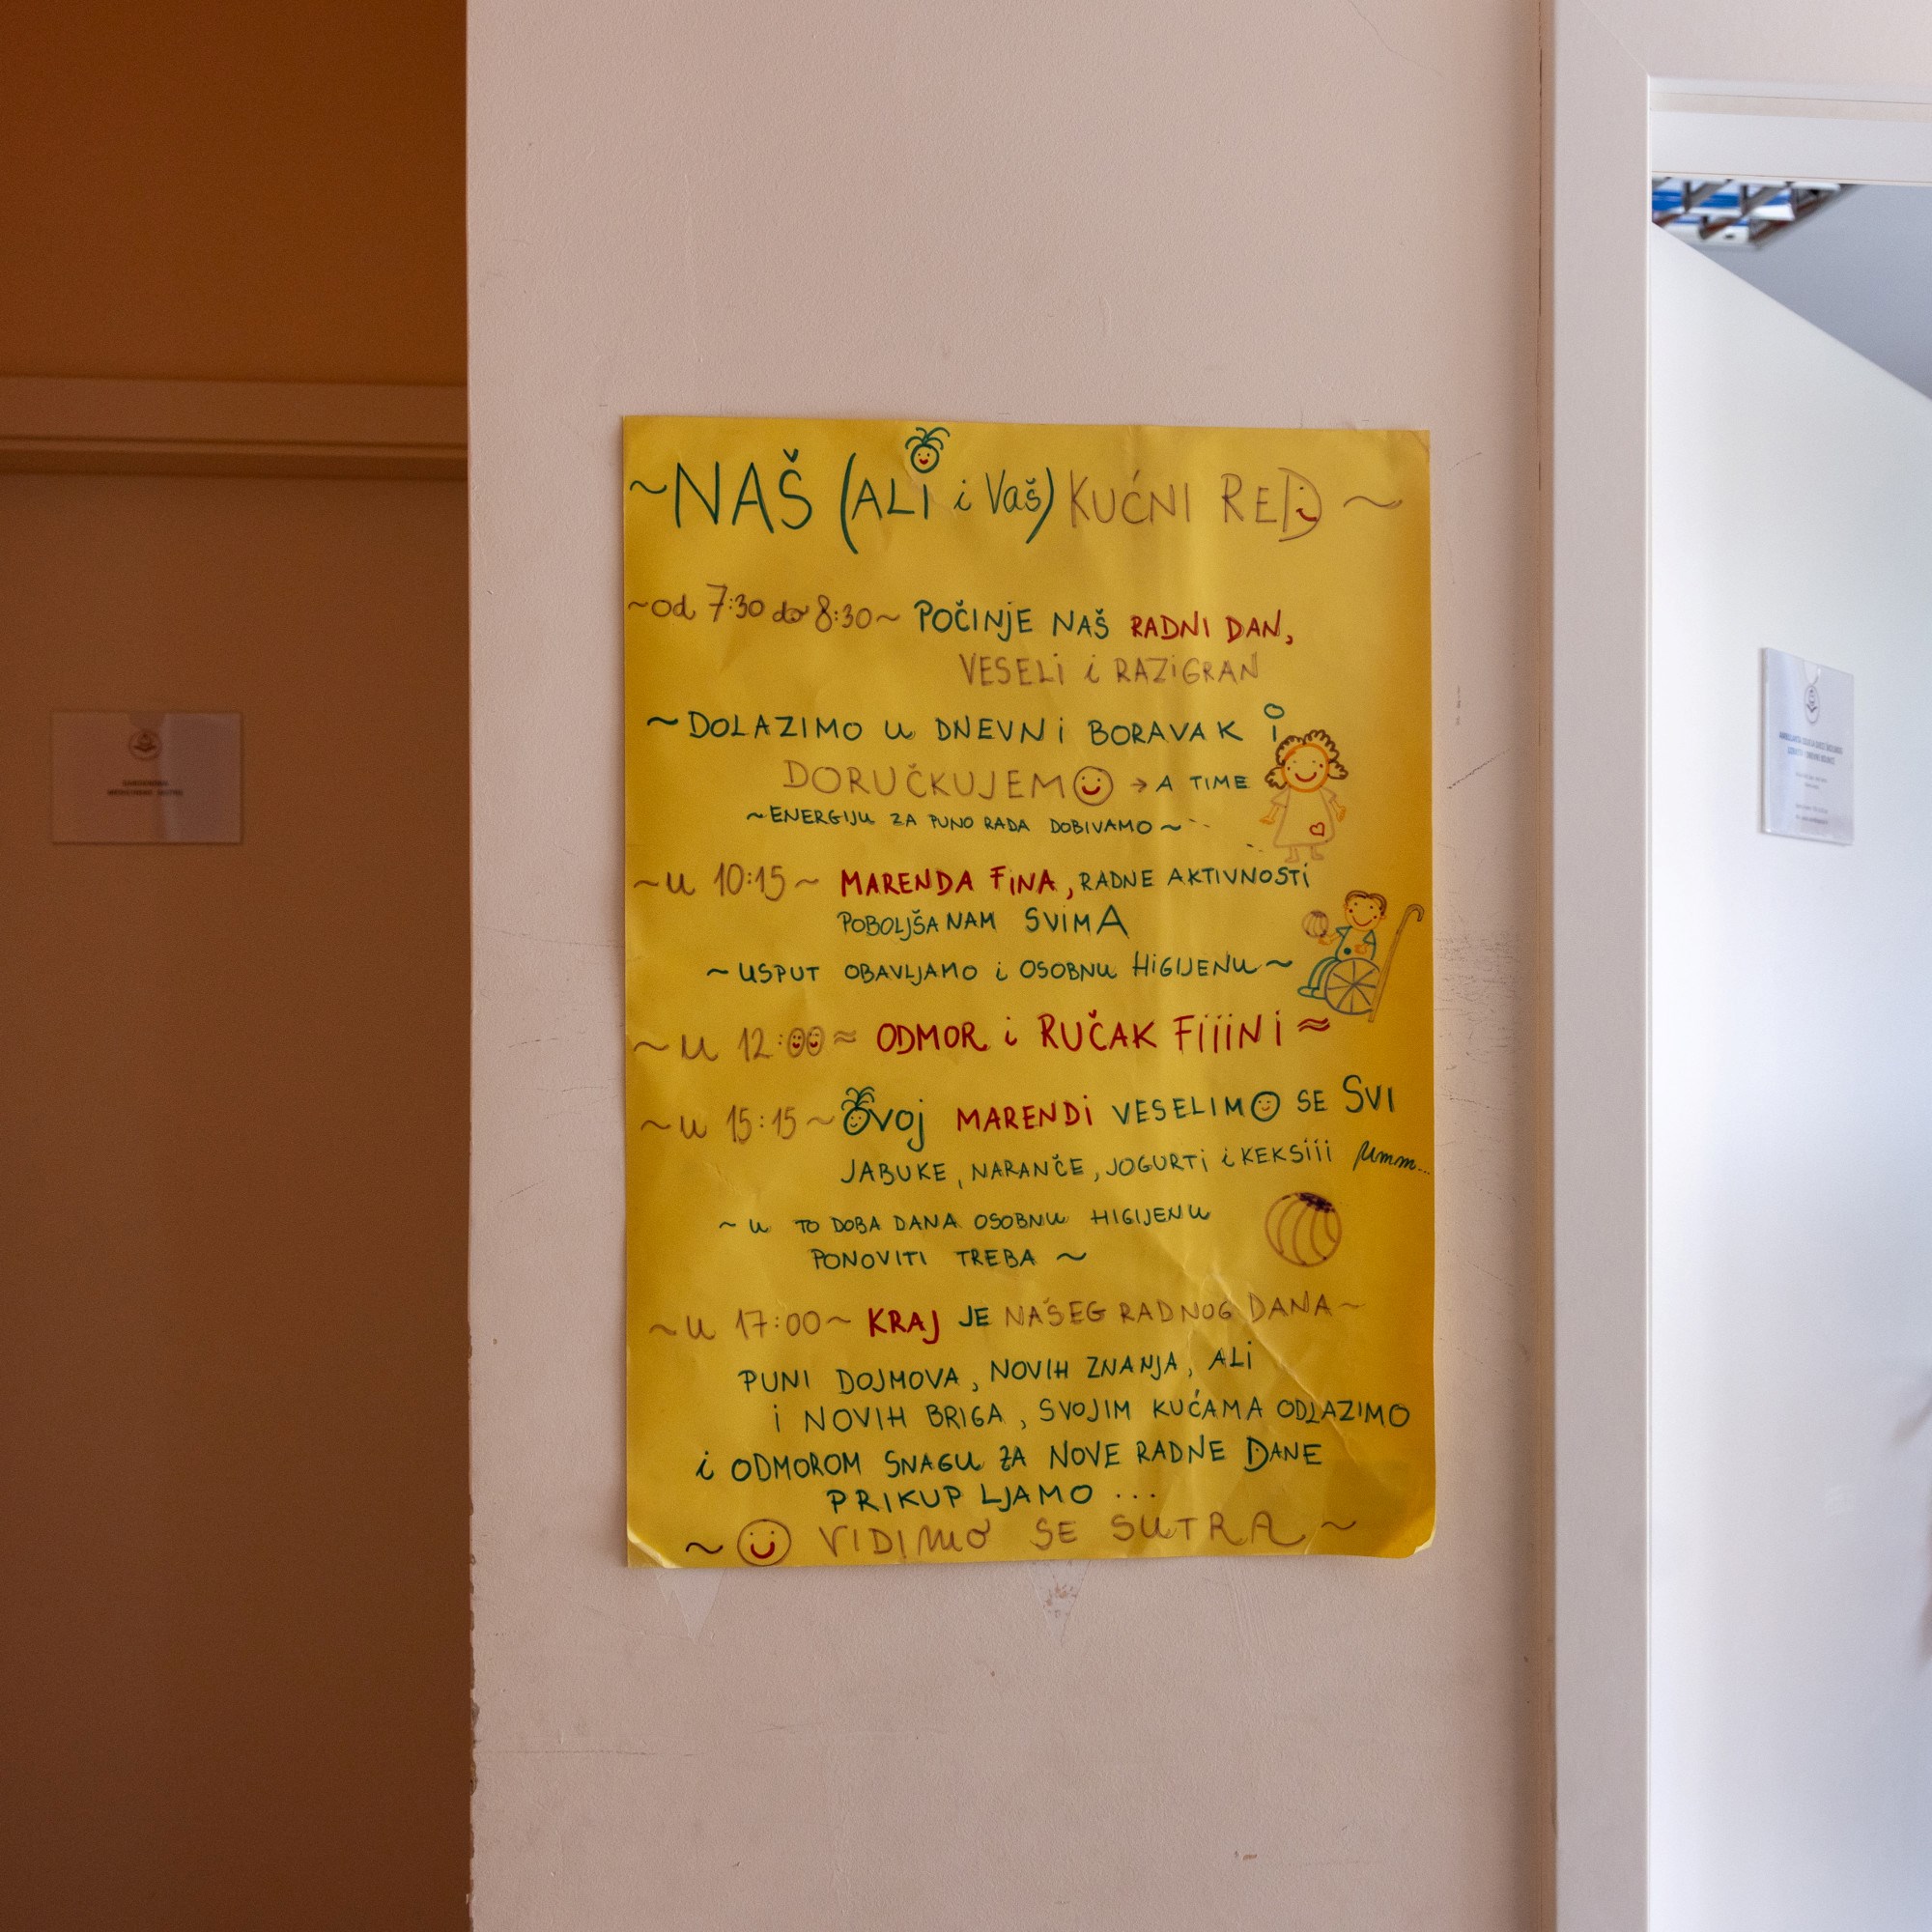 ~NAŠ (ALI i Vaš) KUĆNI RED ~
~od 7:30 do 8:30~ POČINJE NAŠ RADNI DAN,
VESELI i RAZIGRAN
~DOLAZIMO u DNEVNI BORAVAK i
DORUČKUJEMO → A TIME
~ENERGIJU ZA PUNO RADA DOBIVAMO~
~u 10:15~ MARENDA FINA, RADNE AKTIVNOSTI
POBOLJŠA NAM SVIMA
~USPUT OBAVLJAMO i OSOBNU HIGIJENU~
~u 12:00≈ ODMOR i RUČAK FIIINI≈
~u 15:15~ Ovoj MARENDI VESELIMO SE SVI
JABUKE, NARANČE, JOGURTI i KEKSIII Mmm...
~u TO DOBA DANA OSOBNU HIGIJENU
PONOVITI TREBA ~
~u 17:00~ KRAJ JE NAŠEG RADNOG DANA~
PUNI DOJMOVA, NOVIH ZNANJA, ALI
i NOVIH BRIGA, SVOJIM KUĆAMA ODLAZIMO
i ODMOROM SNAGU ZA NOVE RADNE DANE
PRIKUPLJAMO ...
~ VIDIMO SE SUTRA ~